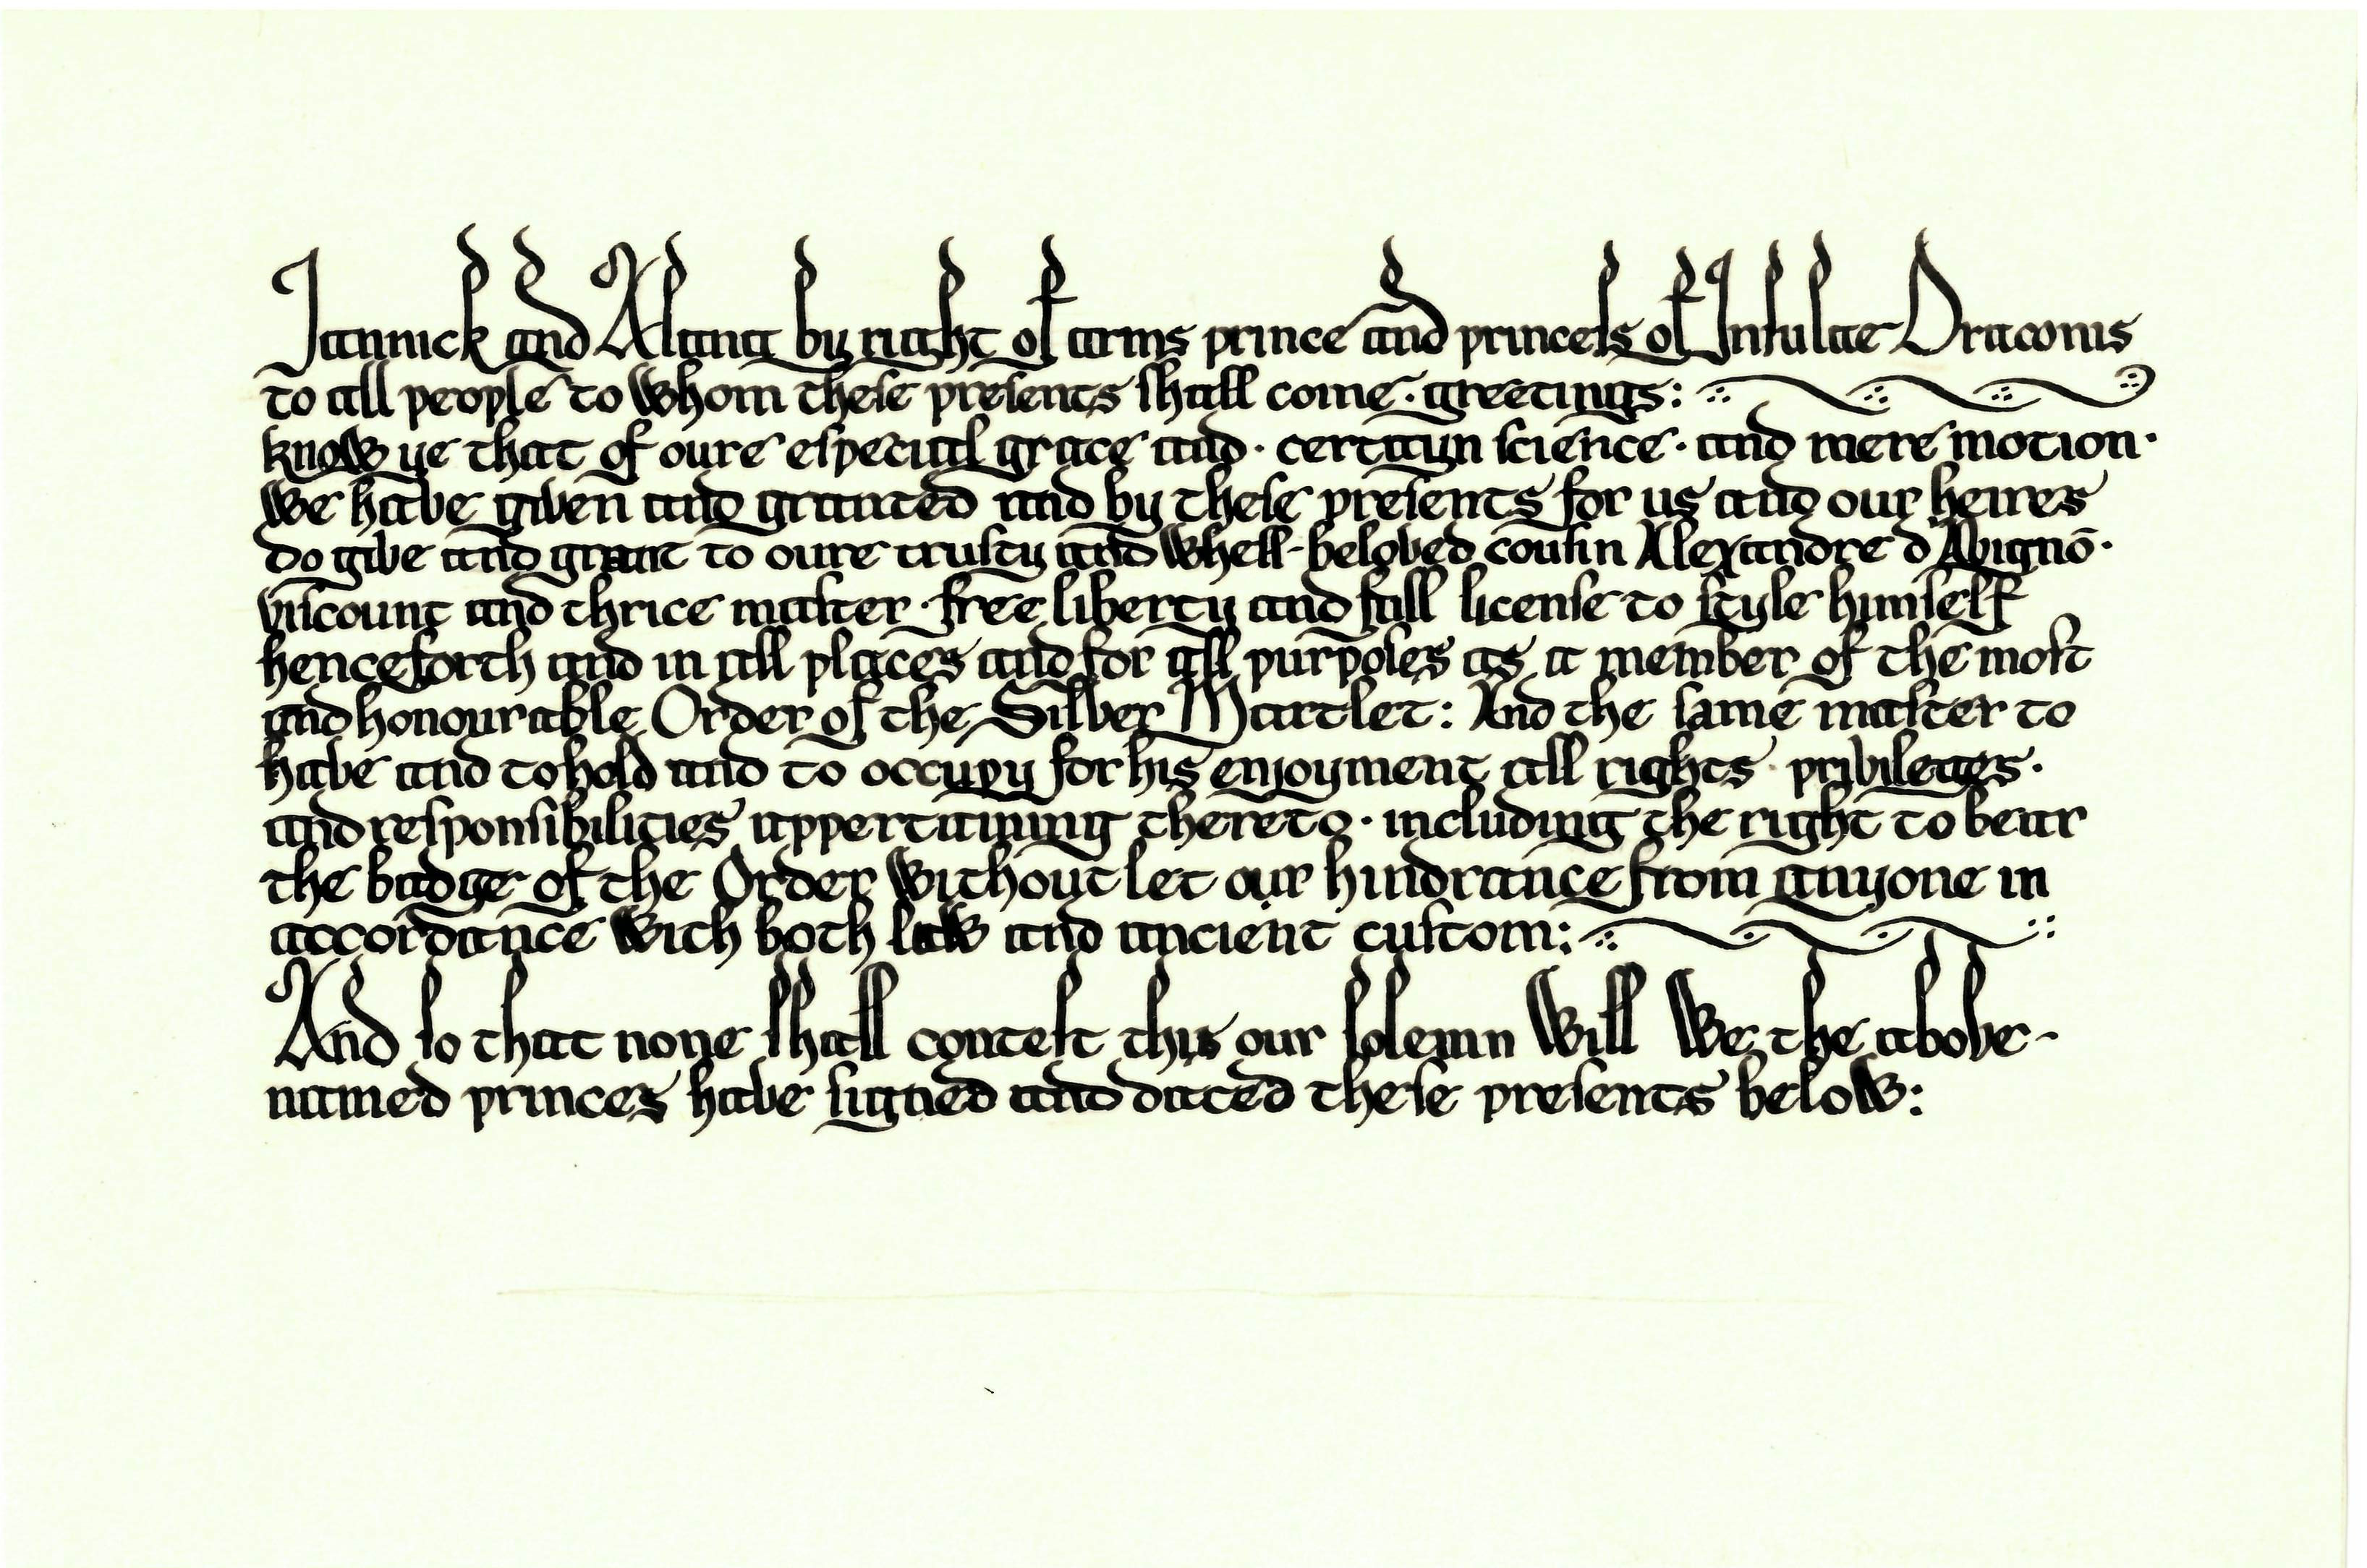 Jannick and Alana by right of arms prince and princeſs of Inſulae Draconis
to all people to whom theſe preſents ſhall come · greetings:
know ye that of oure eſpecial grace and · certayn ſcience · and mere motion ·
We have given and granted and by theſe preſents for us and our heires
do give and grant to oure truſty and whell-beloved couſin Alexandre d'Avignō ·
viſcount and thrice maſter · free liberty and full licenſe to ſtyle himſelf
henceforth and in all places and for all purpoſes as a member of the moſt
and honourable Order of the Silver Martlet: And the ſame maſter to
have and to hold and to occupy for his enjoyment all rights · privileges ·
and reſponſibilities appertaining thereto · including the right to bear
the badge of the Order without let our hindrance from anyone in
accordance with both law and ancient cuſtom:
And ſo that none ſhall conteſt this our ſolemn Will We the above-
named princes have ſigned and dated theſe preſents below: